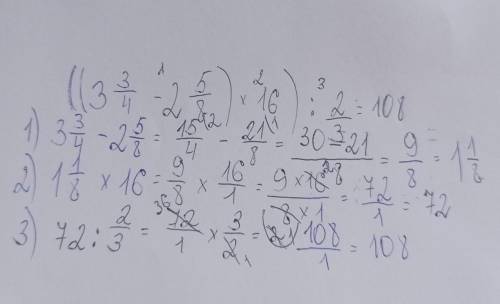 ((3 3/4 - 2 5/8) × 16) : 2/3 = 108
1) 3 3/4 - 2 5/8 = 15/4 - 21/8 = (30 - 21)/8 = 9/8 = 1 1/8
2) 1 1/8 × 16 = 9/8 × 16/1 = (9 × 16)/(8 × 1) = 72/1 = 72
3) 72 : 2/3 = 72/1 × 3/2 = 108/1 = 108